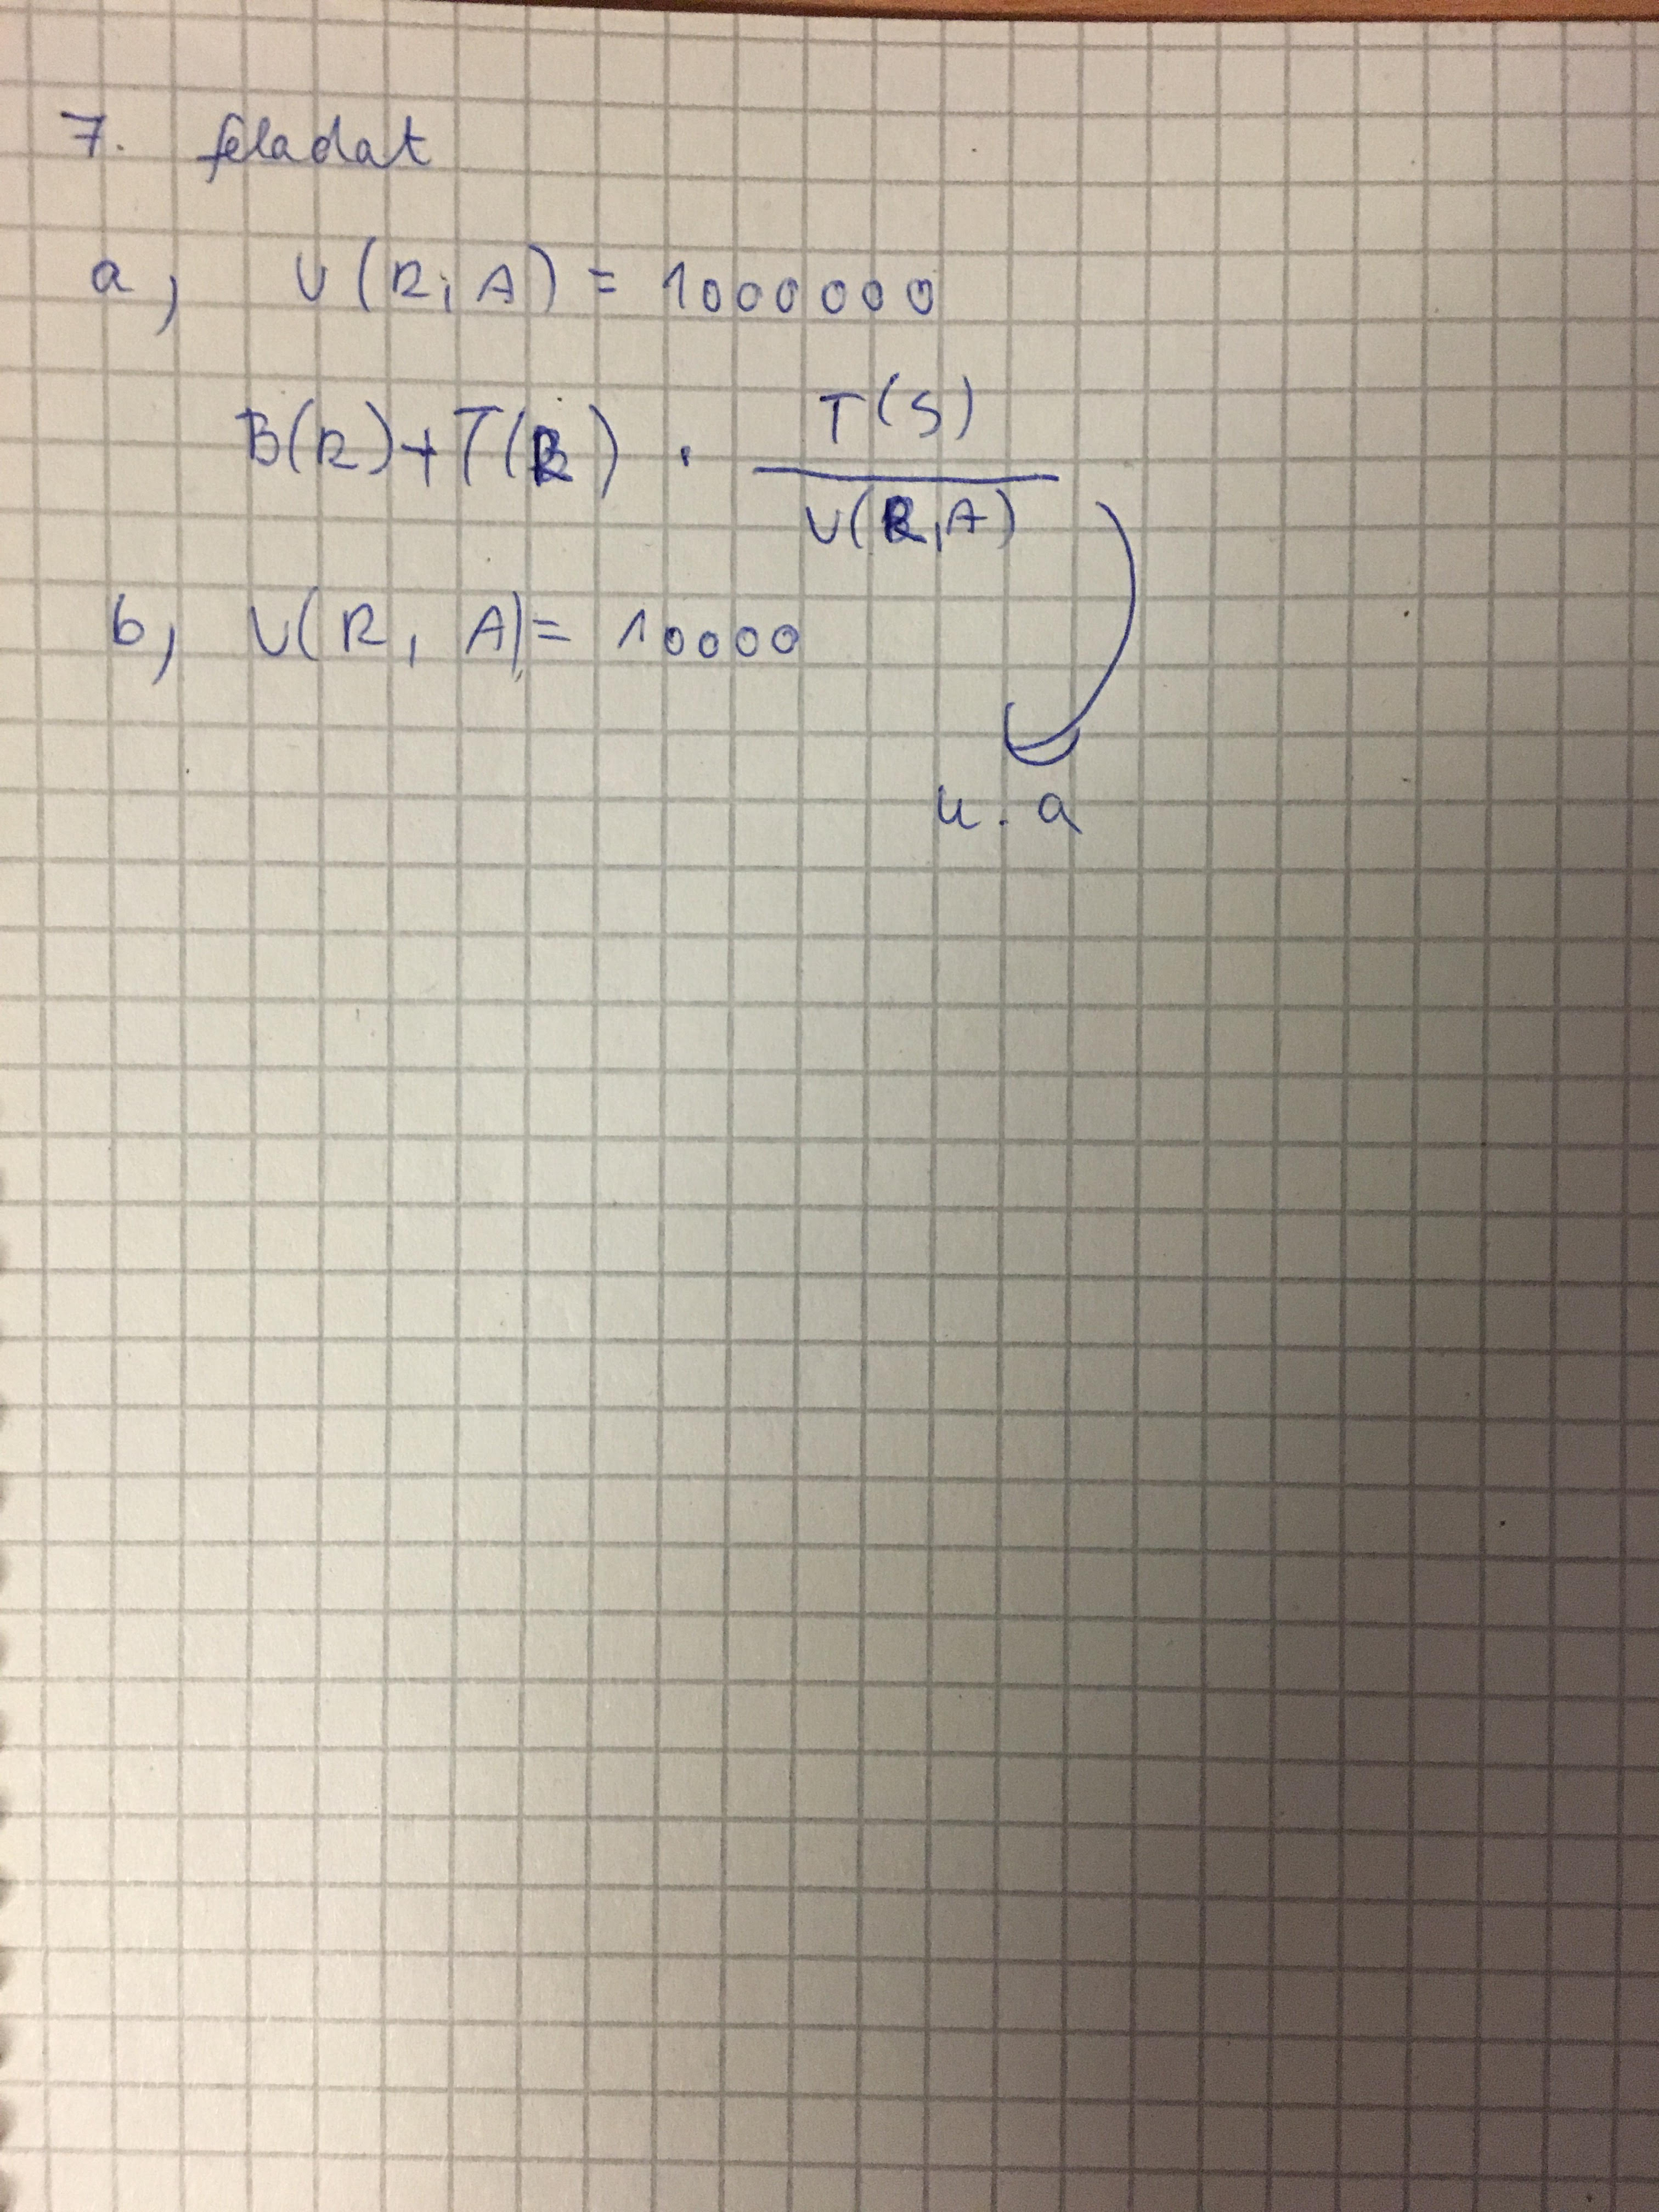 7. feladat
a, V(R, A) = 1000000
B(R)+T(R) · T(S) / V(R,A)
b, V(R, A) = 10000
u. a